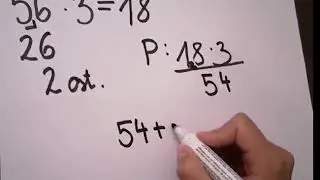 56 · 3 = 18
26
2 ost.
P: 18 · 3
54
54 +